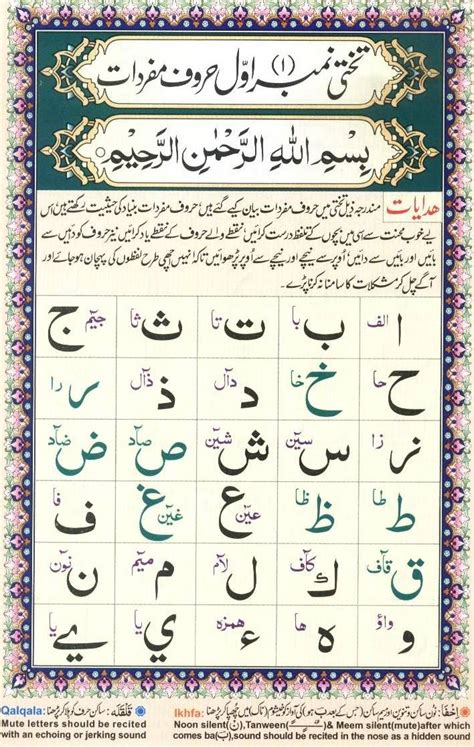 تختی نمبر اوّل (۱) حروف مفردات
بِسْمِ اللهِ الرَّحْمٰنِ الرَّحِيْمِ
ھدایات مندرجہ ذیل تختی میں حروف مفردات بیان کیے گئے ہیں، حروف مفردات بنیاد کی حیثیت رکھتے ہیں اس
لیے خوب محنت سے اسی میں بچوں کے تلفظ درست کرائیں نقطے والے حروف کے نقطے یاد کرائیں نیز حروف کو دہیں سے
بائیں اور بائیں سے دائیں، اُوپر سے نیچے اور نیچے سے اُوپر پڑھوائیں تاکہ انہیں اچھی طرح لفظوں کی پہچان ہو جائے اور
آگے چل کر مشکلات کا سامنا نہ کرنا پڑے۔
ا الف ب با ت تا ث ثا ج جیٓم
ح حا خ خا د دآل ذ ذآل ر را
ز زا س سیٓن ش شیٓن ص صآد ض ضآد
ط طا ظ ظا ع عیٓن غ غیٓن ف فا
ق قآف ك کآف ل لآم م میٓم ن نوٓن
و وآؤ ه ھا ء ھمزہ ي یا ے یا
Qalqala: قَلْقَلَہ: ساکن حرف کو ہلا کر پڑھنا
Mute letters should be recited
with an echoing or jerking sound
Ikhfa: اِخْفَا: نون ساکن و تنوین اور میم ساکن (جس کے بعد ب ہو) کی آواز کو خیشوم (ناک) میں چھپا کر پڑھنا
Noon silent(نْ),Tanween(ً ٍ ٌ)& Meem silent(mute)after which
comes ba(ب),sound should be recited in the nose as a hidden sound